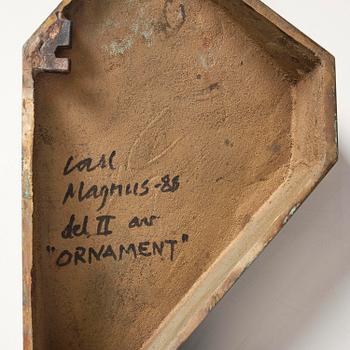 Carl
Magnus-88
del II av
"ORNAMENT"